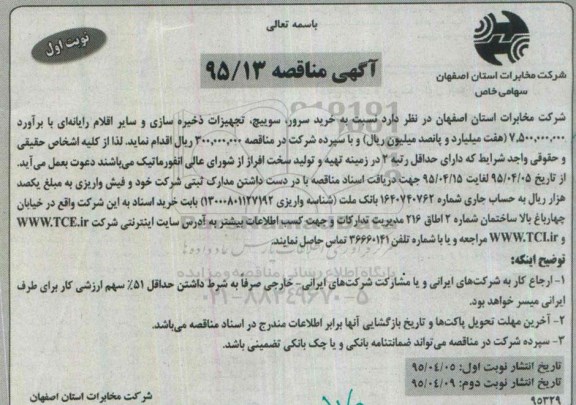 باسمه تعالی
نوبت اول
شرکت مخابرات استان اصفهان
سهامی خاص
آگهی مناقصه ۹۵/۱۳
شرکت مخابرات استان اصفهان در نظر دارد نسبت به خرید سرور، سوییچ، تجهیزات ذخیره سازی و سایر اقلام رایانه‌ای با برآورد
۷,۵۰۰,۰۰۰,۰۰۰ (هفت میلیارد و پانصد میلیون ریال) و با سپرده شرکت در مناقصه ۳۰۰,۰۰۰,۰۰۰ ریال اقدام نماید. لذا از کلیه اشخاص حقیقی
و حقوقی واجد شرایط که دارای حداقل رتبه ۲ در زمینه تهیه و تولید سخت افزار از شورای عالی انفورماتیک می‌باشند دعوت بعمل می‌آید.
از تاریخ ۹۵/۰۴/۰۵ لغایت ۹۵/۰۴/۱۵ جهت دریافت اسناد مناقصه با در دست داشتن مدارک ثبتی شرکت خود و فیش واریزی به مبلغ یکصد
هزار ریال به حساب جاری شماره ۱۶۴۰۷۴۰۷۶۲ بانک ملت (شناسه واریزی ۱۳۰۰۰۸۰۱۱۲۷۱۹۲) بابت خرید اسناد به این شرکت واقع در خیابان
چهارباغ بالا ساختمان شماره ۲ اطاق ۲۱۶ مدیریت تدارکات و جهت کسب اطلاعات بیشتر به آدرس سایت اینترنتی شرکت WWW.TCE.ir
و WWW.TCI.ir مراجعه و یا با شماره تلفن ۳۶۶۶۰۱۴۱ تماس حاصل نمایند.
توضیح اینکه:
۱- ارجاع کار به شرکت‌های ایرانی و یا مشارکت شرکت‌های ایرانی- خارجی صرفا به شرط داشتن حداقل ۵۱٪ سهم ارزشی کار برای طرف
ایرانی میسر خواهد بود.
۲- آخرین مهلت تحویل پاکت‌ها و تاریخ بازگشایی آنها برابر اطلاعات مندرج در اسناد مناقصه می‌باشد.
۳- سپرده شرکت در مناقصه می‌تواند ضمانتنامه بانکی و یا چک بانکی تضمینی باشد.
پایگاه اطلاع رسانی مناقصه و مزایده
۰۲۱-۸۸۳۴۹۶۷۰-۵
تاریخ انتشار نوبت اول: ۹۵/۰۴/۰۵
تاریخ انتشار نوبت دوم: ۹۵/۰۴/۰۹
۹۵۳۲۹
شرکت مخابرات استان اصفهان